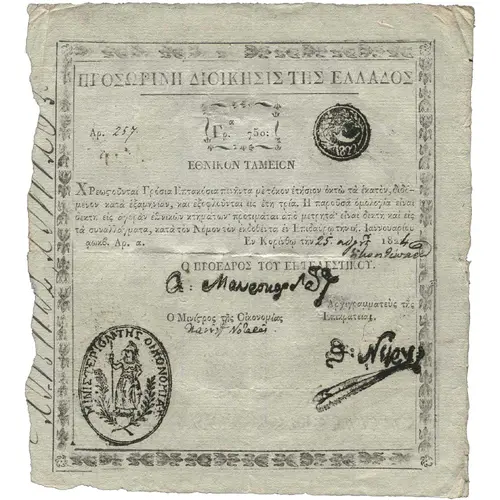 ΠΡΟΣΩΡΙΝΗ ΔΙΟΙΚΗΣΙΣ ΤΗΣ ΕΛΛΑΔΟΣ
Αρ. 257
Γρ. 750:
1822
ΕΘΝΙΚΟΝ ΤΑΜΕΙΟΝ
Χρεωςοῦνται Γρόσια Επτακόσια πενῆντα μὲ τόκον ἐτήσιον ὀκτὼ τὰ ἑκατὸν, διδό-
μενον κατὰ ἑξαμηνίαν, καὶ ἐξοφλοῦνται εἰς ἔτη τρία. Η παροῦσα ὁμολογία εἶναι
δεκτὴ εἰς ἀγορὰν ἐθνικῶν κτημάτων προτιμᾶται ἀπὸ μετρητὰ εἶναι δεκτὴ καὶ εἰς
τὰ συναλλάγματα, κατὰ τὸν Νόμον τὸν ἐκδοθέντα ἐν Ἐπιδαύρῳ τῇ Ἰαννουαρίου
αωκβ. Αρ. α. Εν Κορίνθῳ τῇ 25 182
Ο ΠΡΟΕΔΡΟΣ ΤΟΥ ΕΚΤΕΛΕΣΤΙΚΟΥ.
Α: Μαυροκορδάτος
Ο Μινίςρος τῆς Οἰκονομίας Αρχιγραμματεὺς τῆς
Πανούτζος Νοταρᾶς Επικρατείας
Θ: Νέγρης
ΜΙΝΙΣΤΕΡΙΟΝ ΤΗΣ ΟΙΚΟΝΟΜΙΑΣ